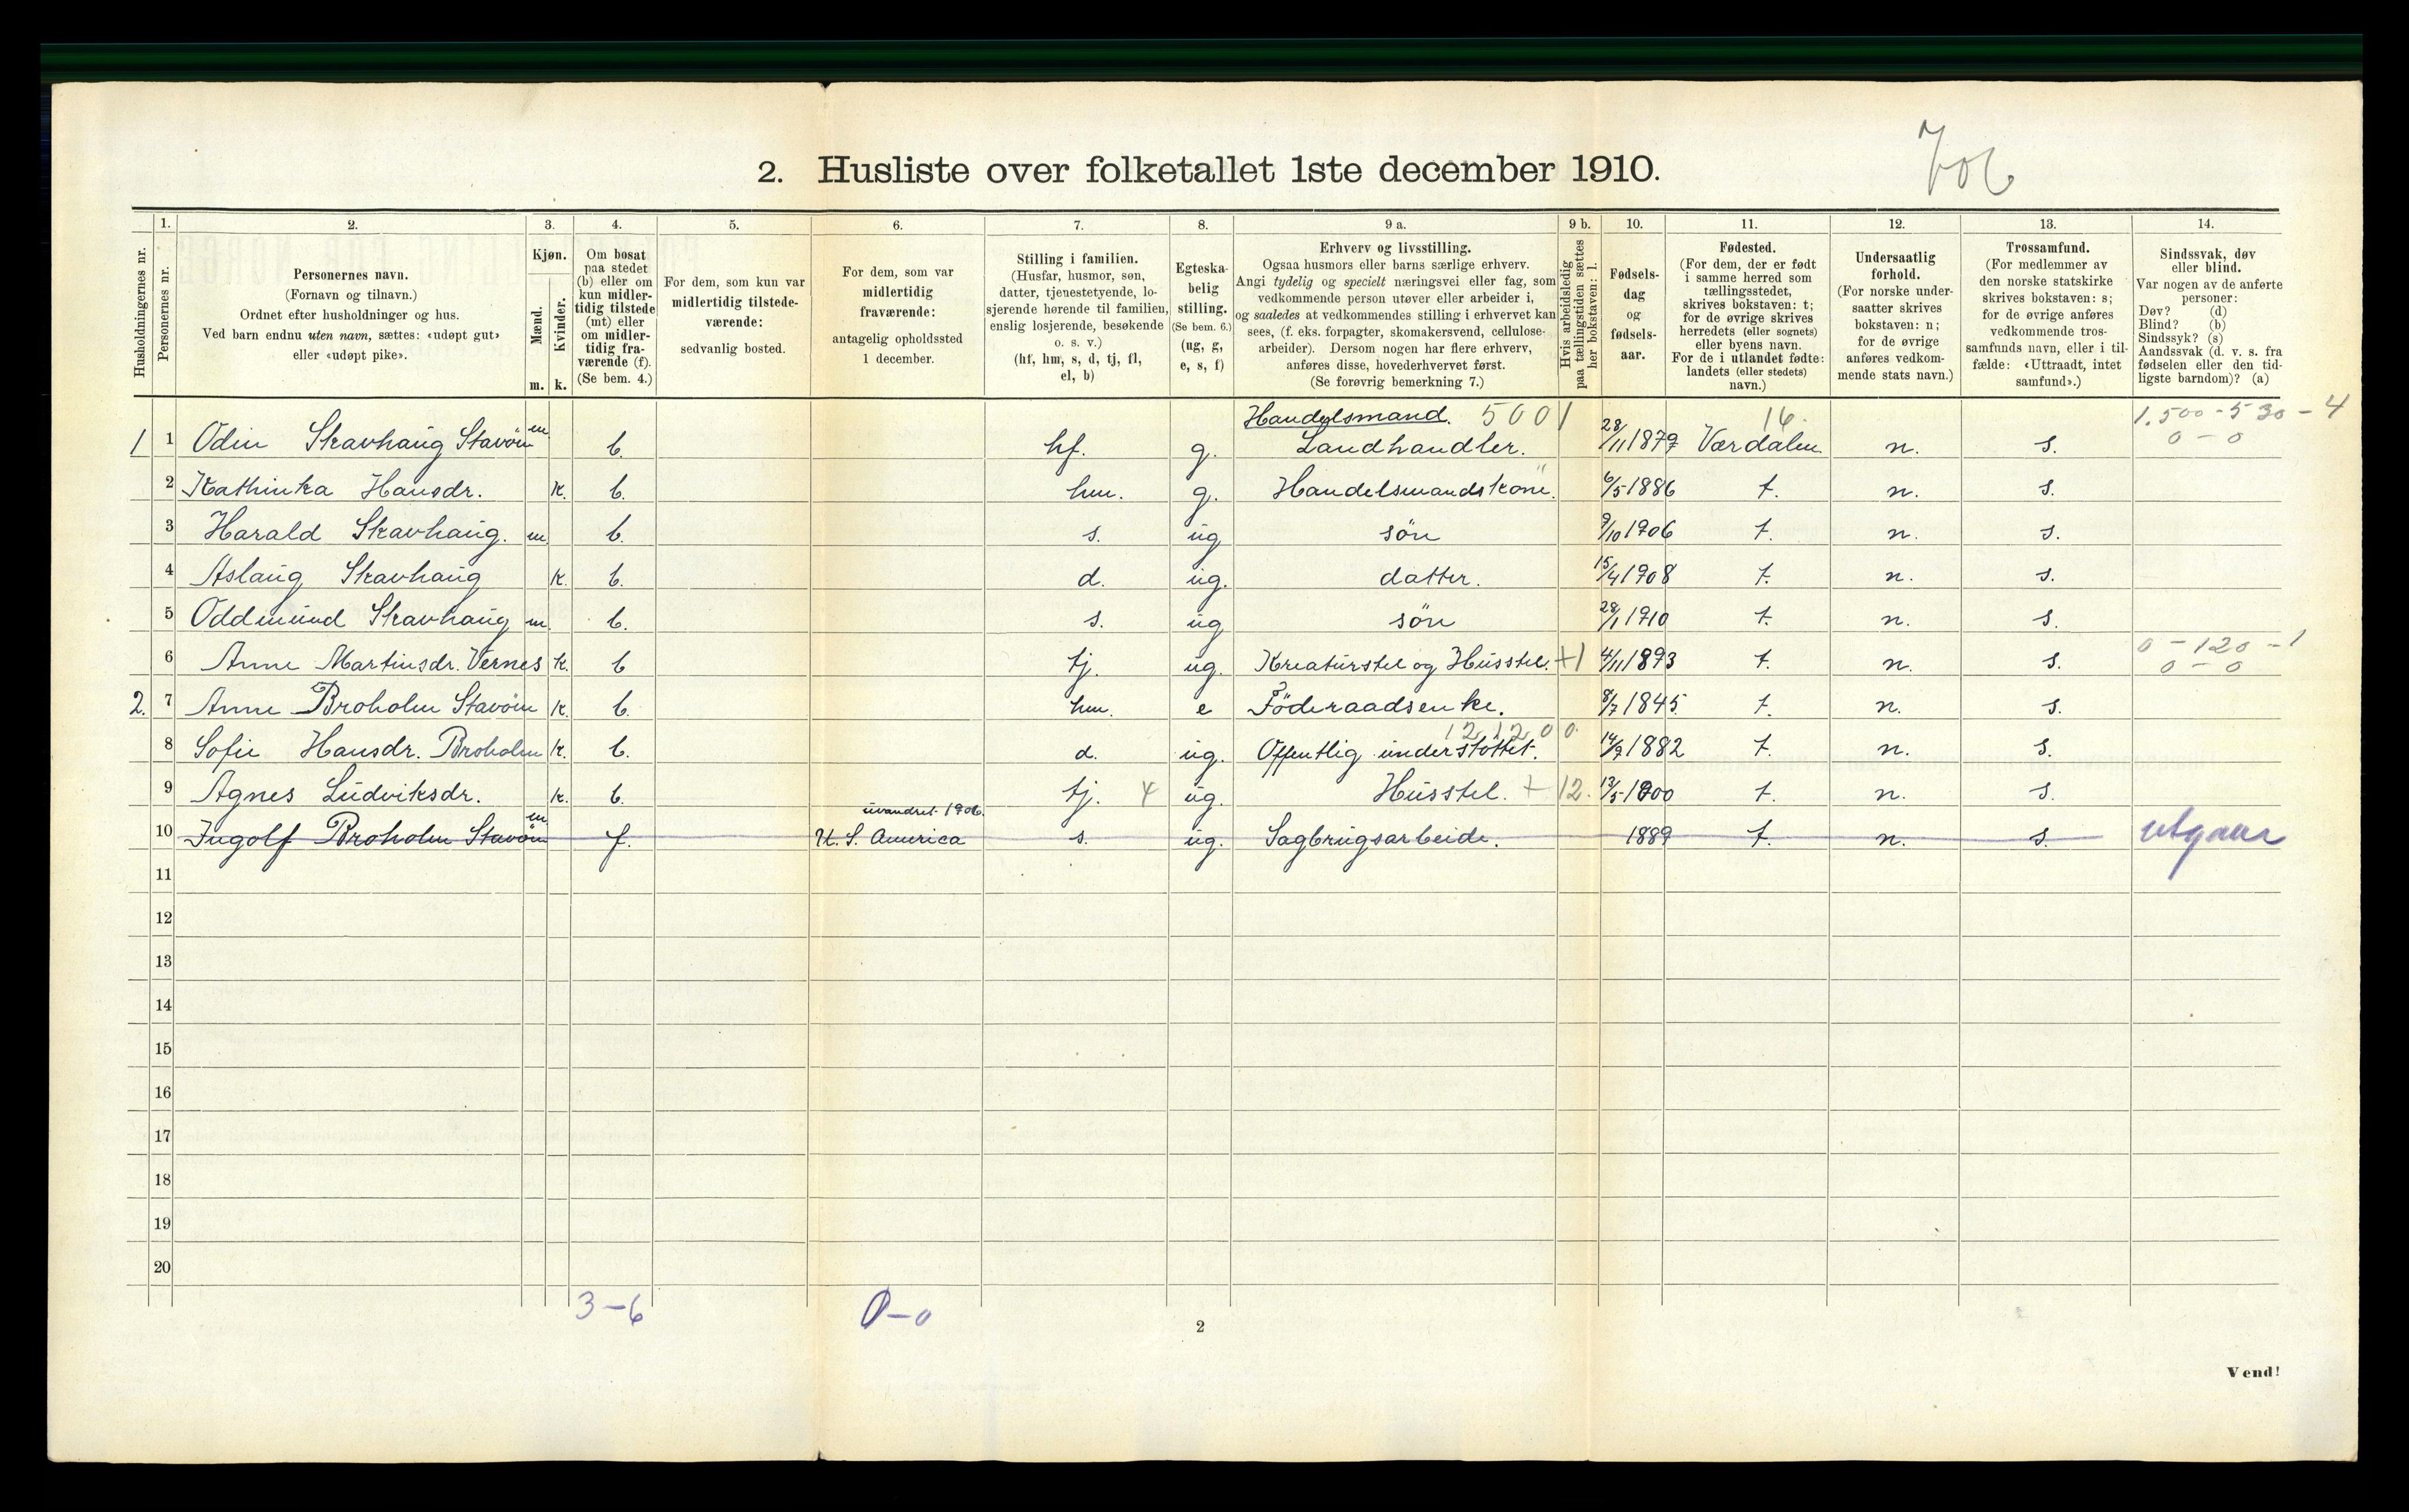 706
2. Husliste over folketallet 1ste december 1910.
Husholdningernes nr.
1. Personernes nr.
2. Personernes navn. (Fornavn og tilnavn.) Ordnet efter husholdninger og hus. Ved barn endnu uten navn, sættes: «udøpt gut» eller «udøpt pike».
3. Kjøn. Mænd. m. Kvinder. k.
4. Om bosat paa stedet (b) eller om kun midlertidig tilstede (mt) eller om midlertidig fraværende (f). (Se bem. 4.)
5. For dem, som kun var midlertidig tilstedeværende: sedvanlig bosted.
6. For dem, som var midlertidig fraværende: antagelig opholdssted 1 december.
7. Stilling i familien. (Husfar, husmor, søn, datter, tjenestetyende, losjerende hørende til familien, enslig losjerende, besøkende o. s. v.) (hf, hm, s, d, tj, fl, el, b)
8. Egteskabelig stilling. (Se bem. 6.) (ug, g, e, s, f)
9 a. Erhverv og livsstilling. Ogsaa husmors eller barns særlige erhverv. Angi tydelig og specielt næringsvei eller fag, som vedkommende person utøver eller arbeider i, og saaledes at vedkommendes stilling i erhvervet kan sees, (f. eks. forpagter, skomakersvend, cellulosearbeider). Dersom nogen har flere erhverv, anføres disse, hovederhvervet først. (Se forøvrig bemerkning 7.)
9 b. Hvis arbeidsledig paa tællingstiden sættes her bokstaven: l.
10. Fødselsdag og fødselsaar.
11. Fødested. (For dem, der er født i samme herred som tællingsstedet, skrives bokstaven: t; for de øvrige skrives herredets (eller sognets) eller byens navn. For de i utlandet fødte: landets (eller stedets) navn.)
12. Undersaatlig forhold. (For norske undersaatter skrives bokstaven: n; for de øvrige anføres vedkommende stats navn.)
13. Trossamfund. (For medlemmer av den norske statskirke skrives bokstaven: s; for de øvrige anføres vedkommende trossamfunds navn, eller i tilfælde: «Uttraadt, intet samfund».)
14. Sindssvak, døv eller blind. Var nogen av de anførte personer: Døv? (d) Blind? (b) Sindssyk? (s) Aandssvak (d. v. s. fra fødselen eller den tidligste barndom)? (a)
Handelsmand. 5001 16. 1.500-530-4
1 1 Odin Skavhaug Stavöin m b. hf. g. Landhandler. 28/11 1879 Værdalen n. s. 0-0
2 Kathinka Hansdr. k. b. hm. g. Handelsmandskone. 6/5 1886 t. n. s.
3 Harald Skavhaug. m b. s. ug søn 9/10 1906 t. n. s.
4 Aslaug Skavhaug k. b. d. ug. datter. 15/4 1908 t. n. s.
5 Oddmund Skavhaug m. b. s. ug søn 28/1 1910 t. n. s.
0-120-1
6 Anne Martinsdr. Vernes k. b tj. ug. Kreaturstel og Husstel. +1 4/11 1893 t. n. s. 0-0
2. 7 Anne Broholm Stavöin k. b. hm. e Föderaadsenke. 8/7 1845. t. n. s.
12.1200
8 Sofie Hansdr. Broholm k. b. d. ug. Offentlig understöttet. 14/9 1882 t. n. s.
9 Agnes Ludviksdr. k. b. tj. 4 ug. Husstel. + 12. 13/5 1900 t. n. s.
uvandret 1906.
10 Ingolf Broholm Stavöin m f. U. S. America s. ug. Sagbrugsarbeide. 1889 t. n. s. utgaar
11
12
13
14
15
16
17
18
19
20
3-6 0-0
2
Vend!